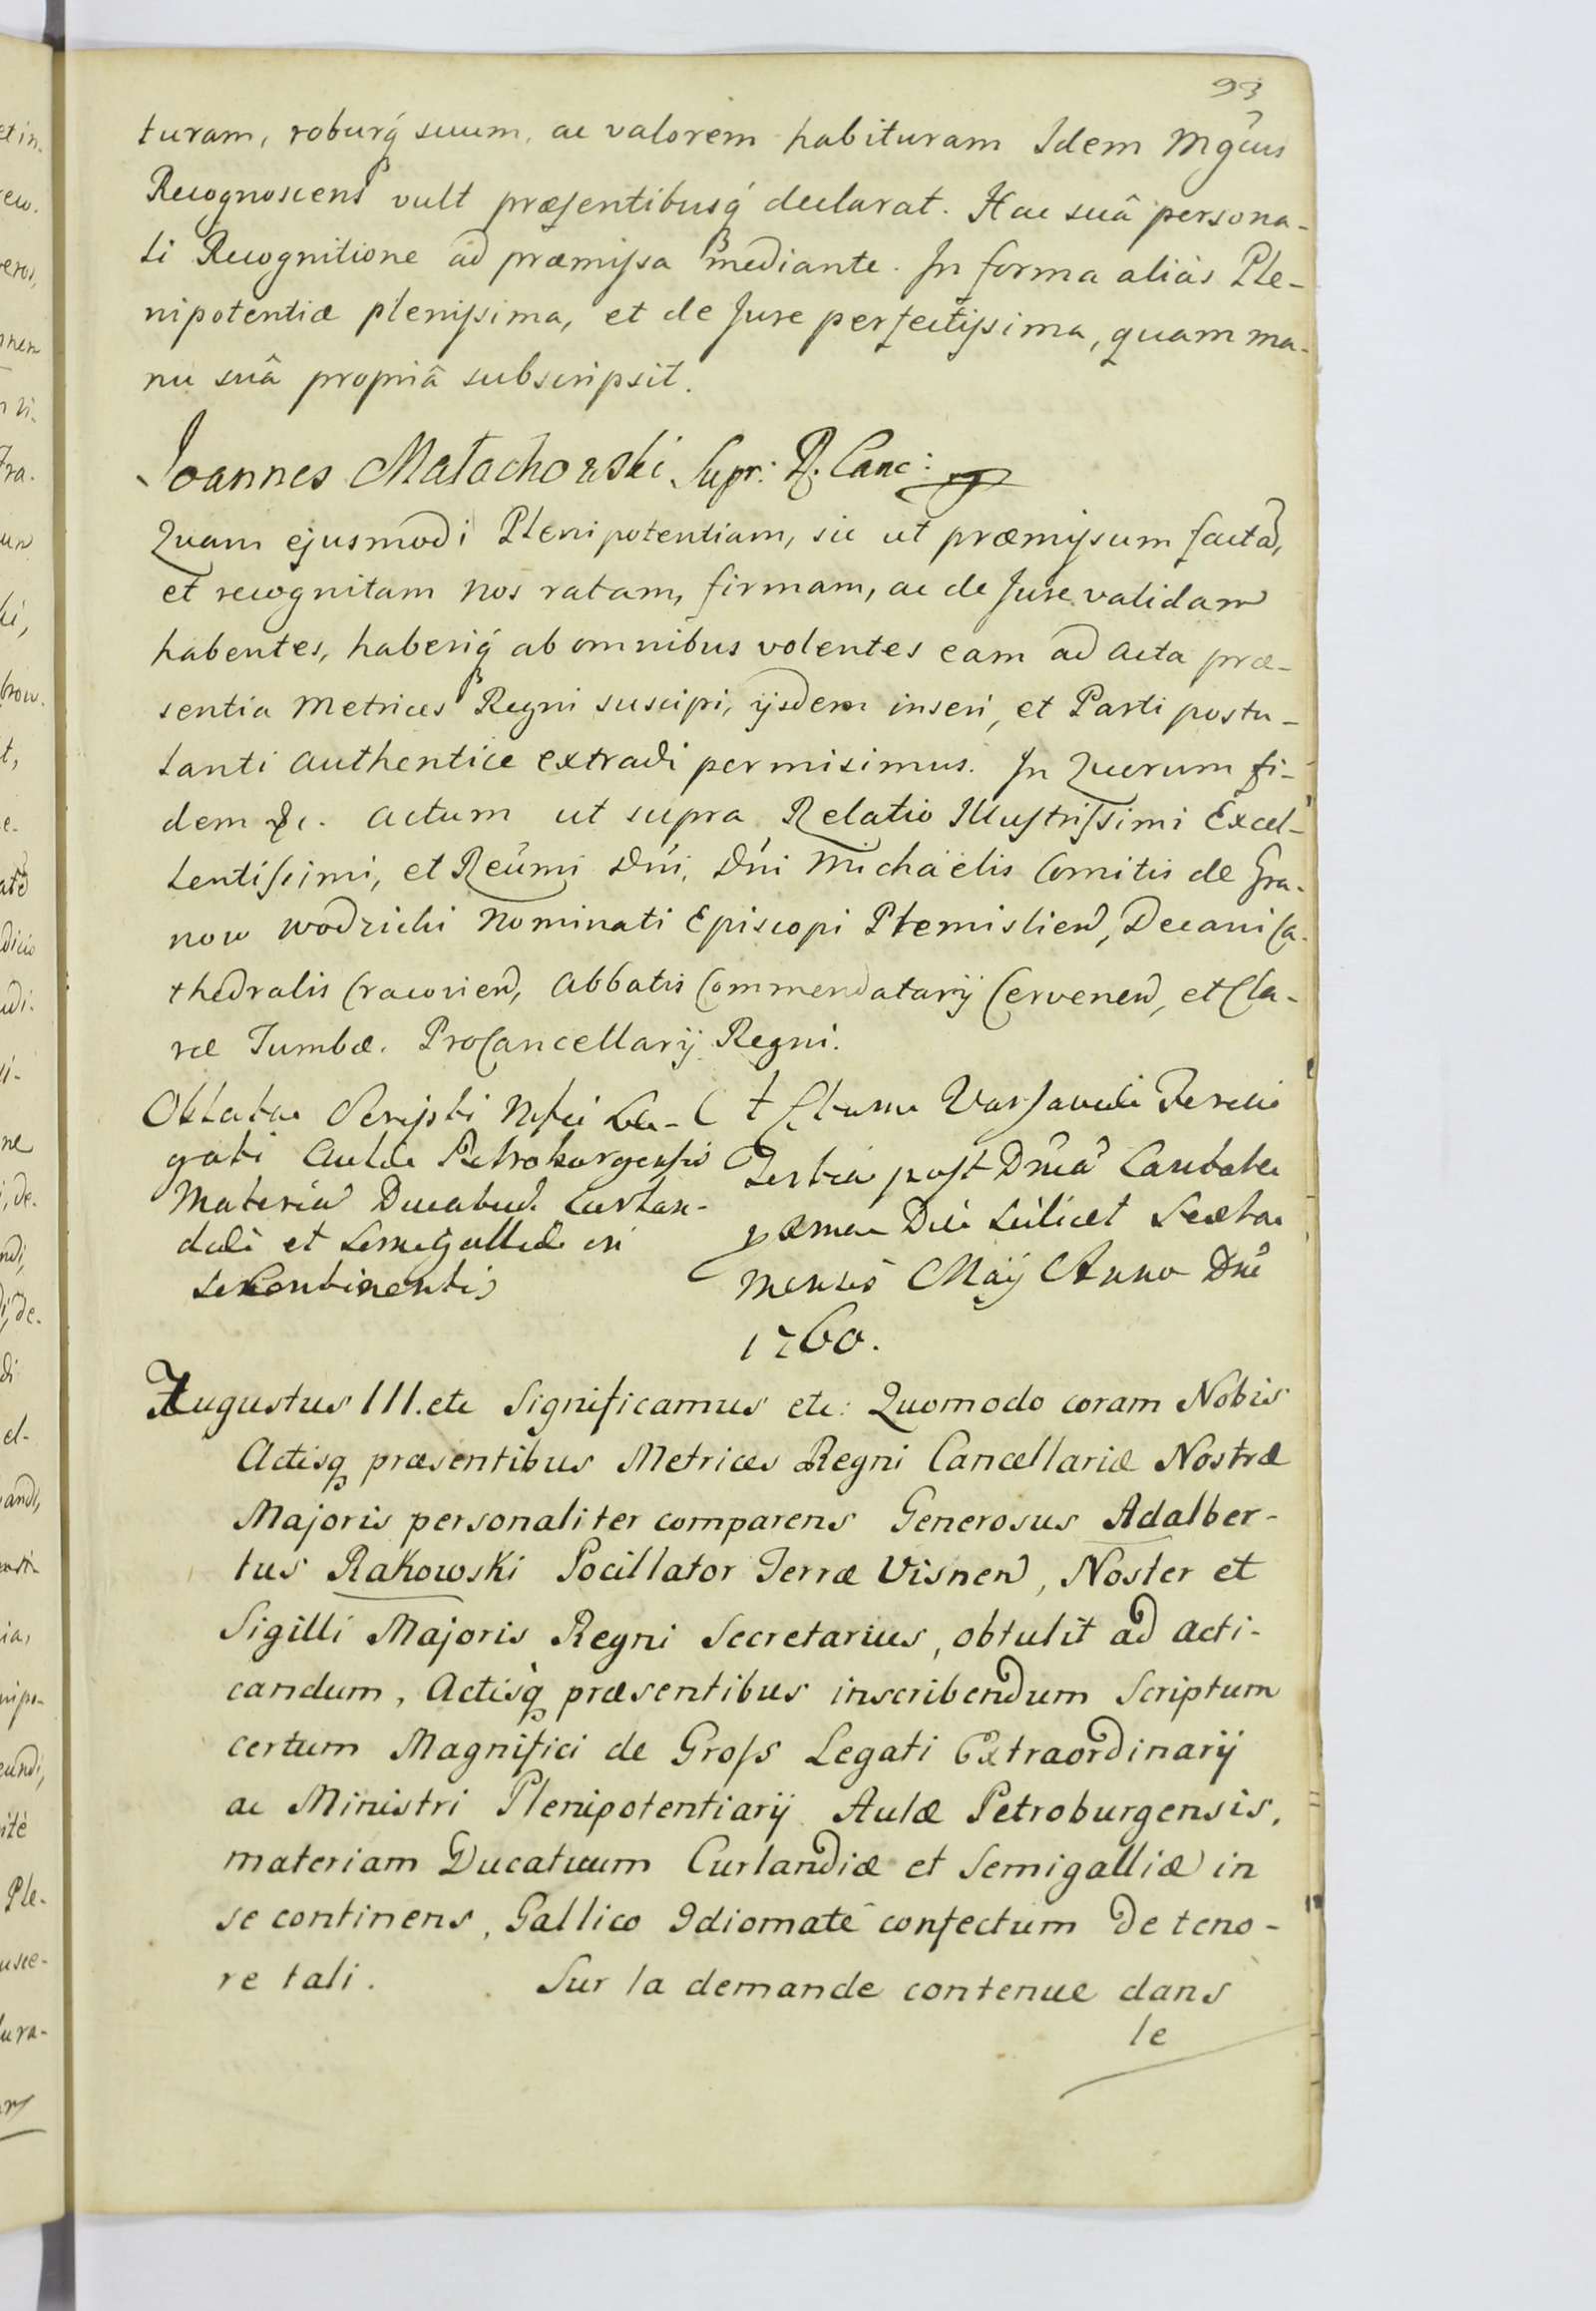 93
turam, roburq́ suum, ac valorem habituram Idem Mgcus
Recognoscens vult præsentibusq́ declarat. Hac suâ persona-
li Recognitione ad præmissa mediante. In forma aliàs Ple-
nipotentiæ plenissima, et de Jure perfectissima, quam ma-
nu suâ propriâ subscripsit.
Joannes Małachowski Supr: R. Canc:
Quam ejusmodi Plenipotentiam, sic ut præmissum factã,
et recognitam nos ratam, firmam, ac de Jure validam
habentes, haberiq́ ab omnibus volentes eam ad acta præ-
sentia Metrices Regni suscipi, ijsdem inseri, et Parti postu-
lanti authentice extradi permisimus. In Quorum fi-
dem &c. actum ut supra Relatio Illustrissimi Excel-
lentissimi, et Reumi Dńi, Dńi Michaëlis Comitis de Gra-
now Wodzicki Nominati Episcopi Premislien, Decani Ca-
thedralis Cracovien, Abbatis Commendatarij Cervenen, et Cla-
ræ Tumbæ. ProCancellarij Regni.
Oblatae Scripti Mfci Le-
gati Aulæ Petroburgensis
Materiã Ducatuũ Curlan-
diæ et Semigalliæ in
se Continentis
Actum Varsaviæ Feria
Tertia post Dñcã Cantate
proxima Die scilicet Sexta
Mensis Maij Anno Dni
1760.
Augustus III. etc Significamus etc: Quomodo coram Nobis
Actisq præsentibus Metrices Regni Cancellariæ Nostræ
Majoris personaliter comparens Generosus Adalber-
tus Rakowski Pocillator Terræ Visnen, Noster et
Sigilli Majoris Regni Secretarius, obtulit ad acti-
candum, Actisq præsentibus inscribendum Scriptum
certum Magnifici de Gross Legati Extraordinarij
ac Ministri Plenipotentiarij Aulæ Petroburgensis,
materiam Ducatuum Curlandiæ et Semigalliæ in
se continens, Gallico Idiomate confectum De teno-
re tali. Sur la demande contenue dans
le